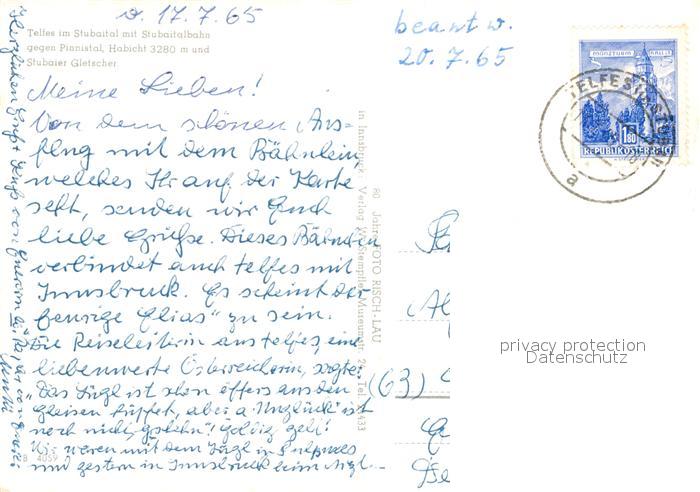 v. 17.7.65
Telfes im Stubaital mit Stubaitalbahn
gegen Pinnistal, Habicht 3280 m und
Stubaier Gletscher
beantw.
20.7.65
MÜNZTURM HALL I. T.
1.80
REPUBLIK ÖSTERREICH
TELFES IM STUBAI
a
Meine Lieben!
Von dem schönen Aus-
flug mit dem Bähnlein
welches Ihr auf der Karte
seht, senden wir Euch
liebe Grüße. Dieses Bähnlein
verbindet auch Telfes mit
Innsbruck. Es scheint der
feurige Elias" zu sein.
Die Reiseleiterin aus Telfes, eine
liebenswerte Österreicherin, sagte:
"Das Zügl ist schon öffers aus den
Gleisen hüpfet, aber a Unglück ist
noch nich gschehn"! Goldig, gell!
Wir waren mit dem Zügl in Fulpmes
und gestern in Innsbruck beim
Herzlichen Gruß
80 Jahre FOTO RISCH-LAU
in Innsbruck Verlag
B 4059
(63)
privacy protection
Datenschutz